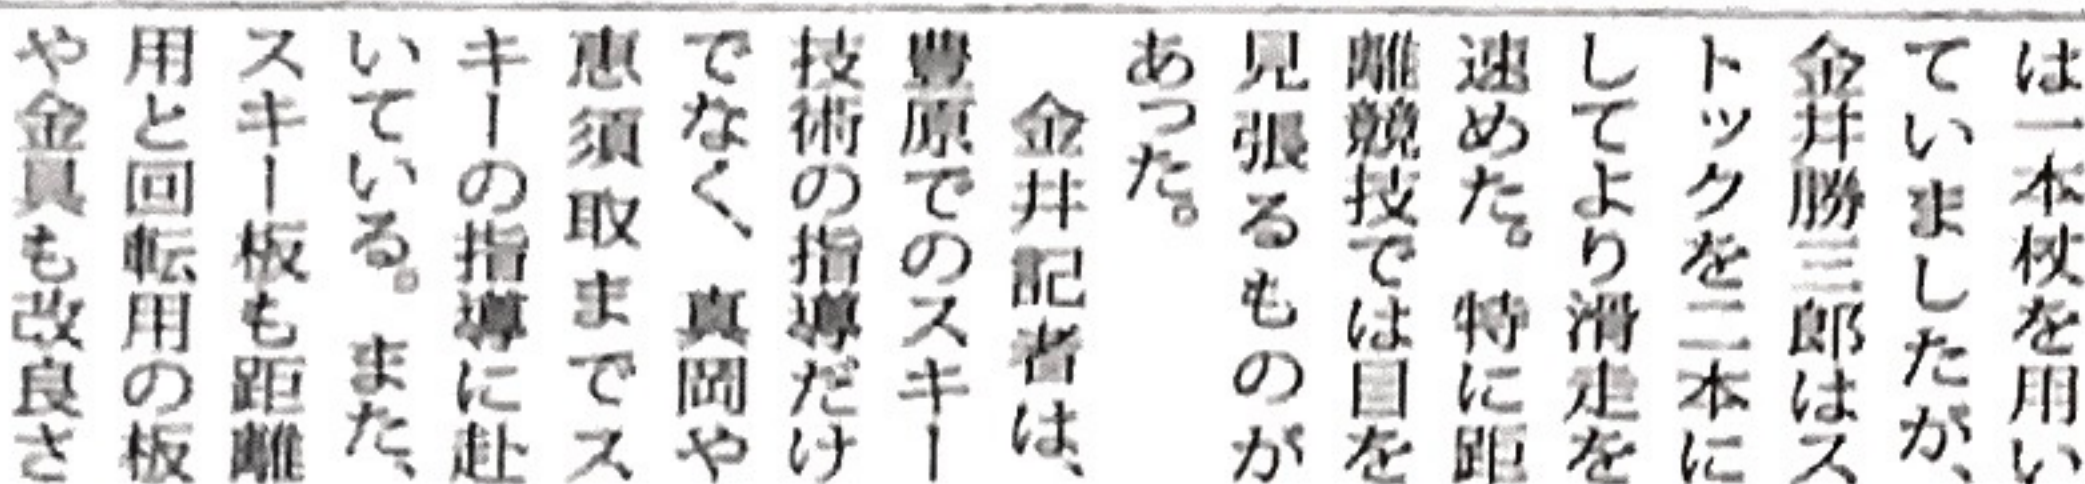 は一本杖を用い
ていましたが、
金井勝三郎はス
トックを二本に
してより滑走を
速めた。特に距
離競技では目を
見張るものが
あった。
金井記者は、
豊原でのスキー
技術の指導だけ
でなく、真岡や
恵須取までス
キーの指導に赴
いている。また、
スキー板も距離
用と回転用の板
や金具も改良さ